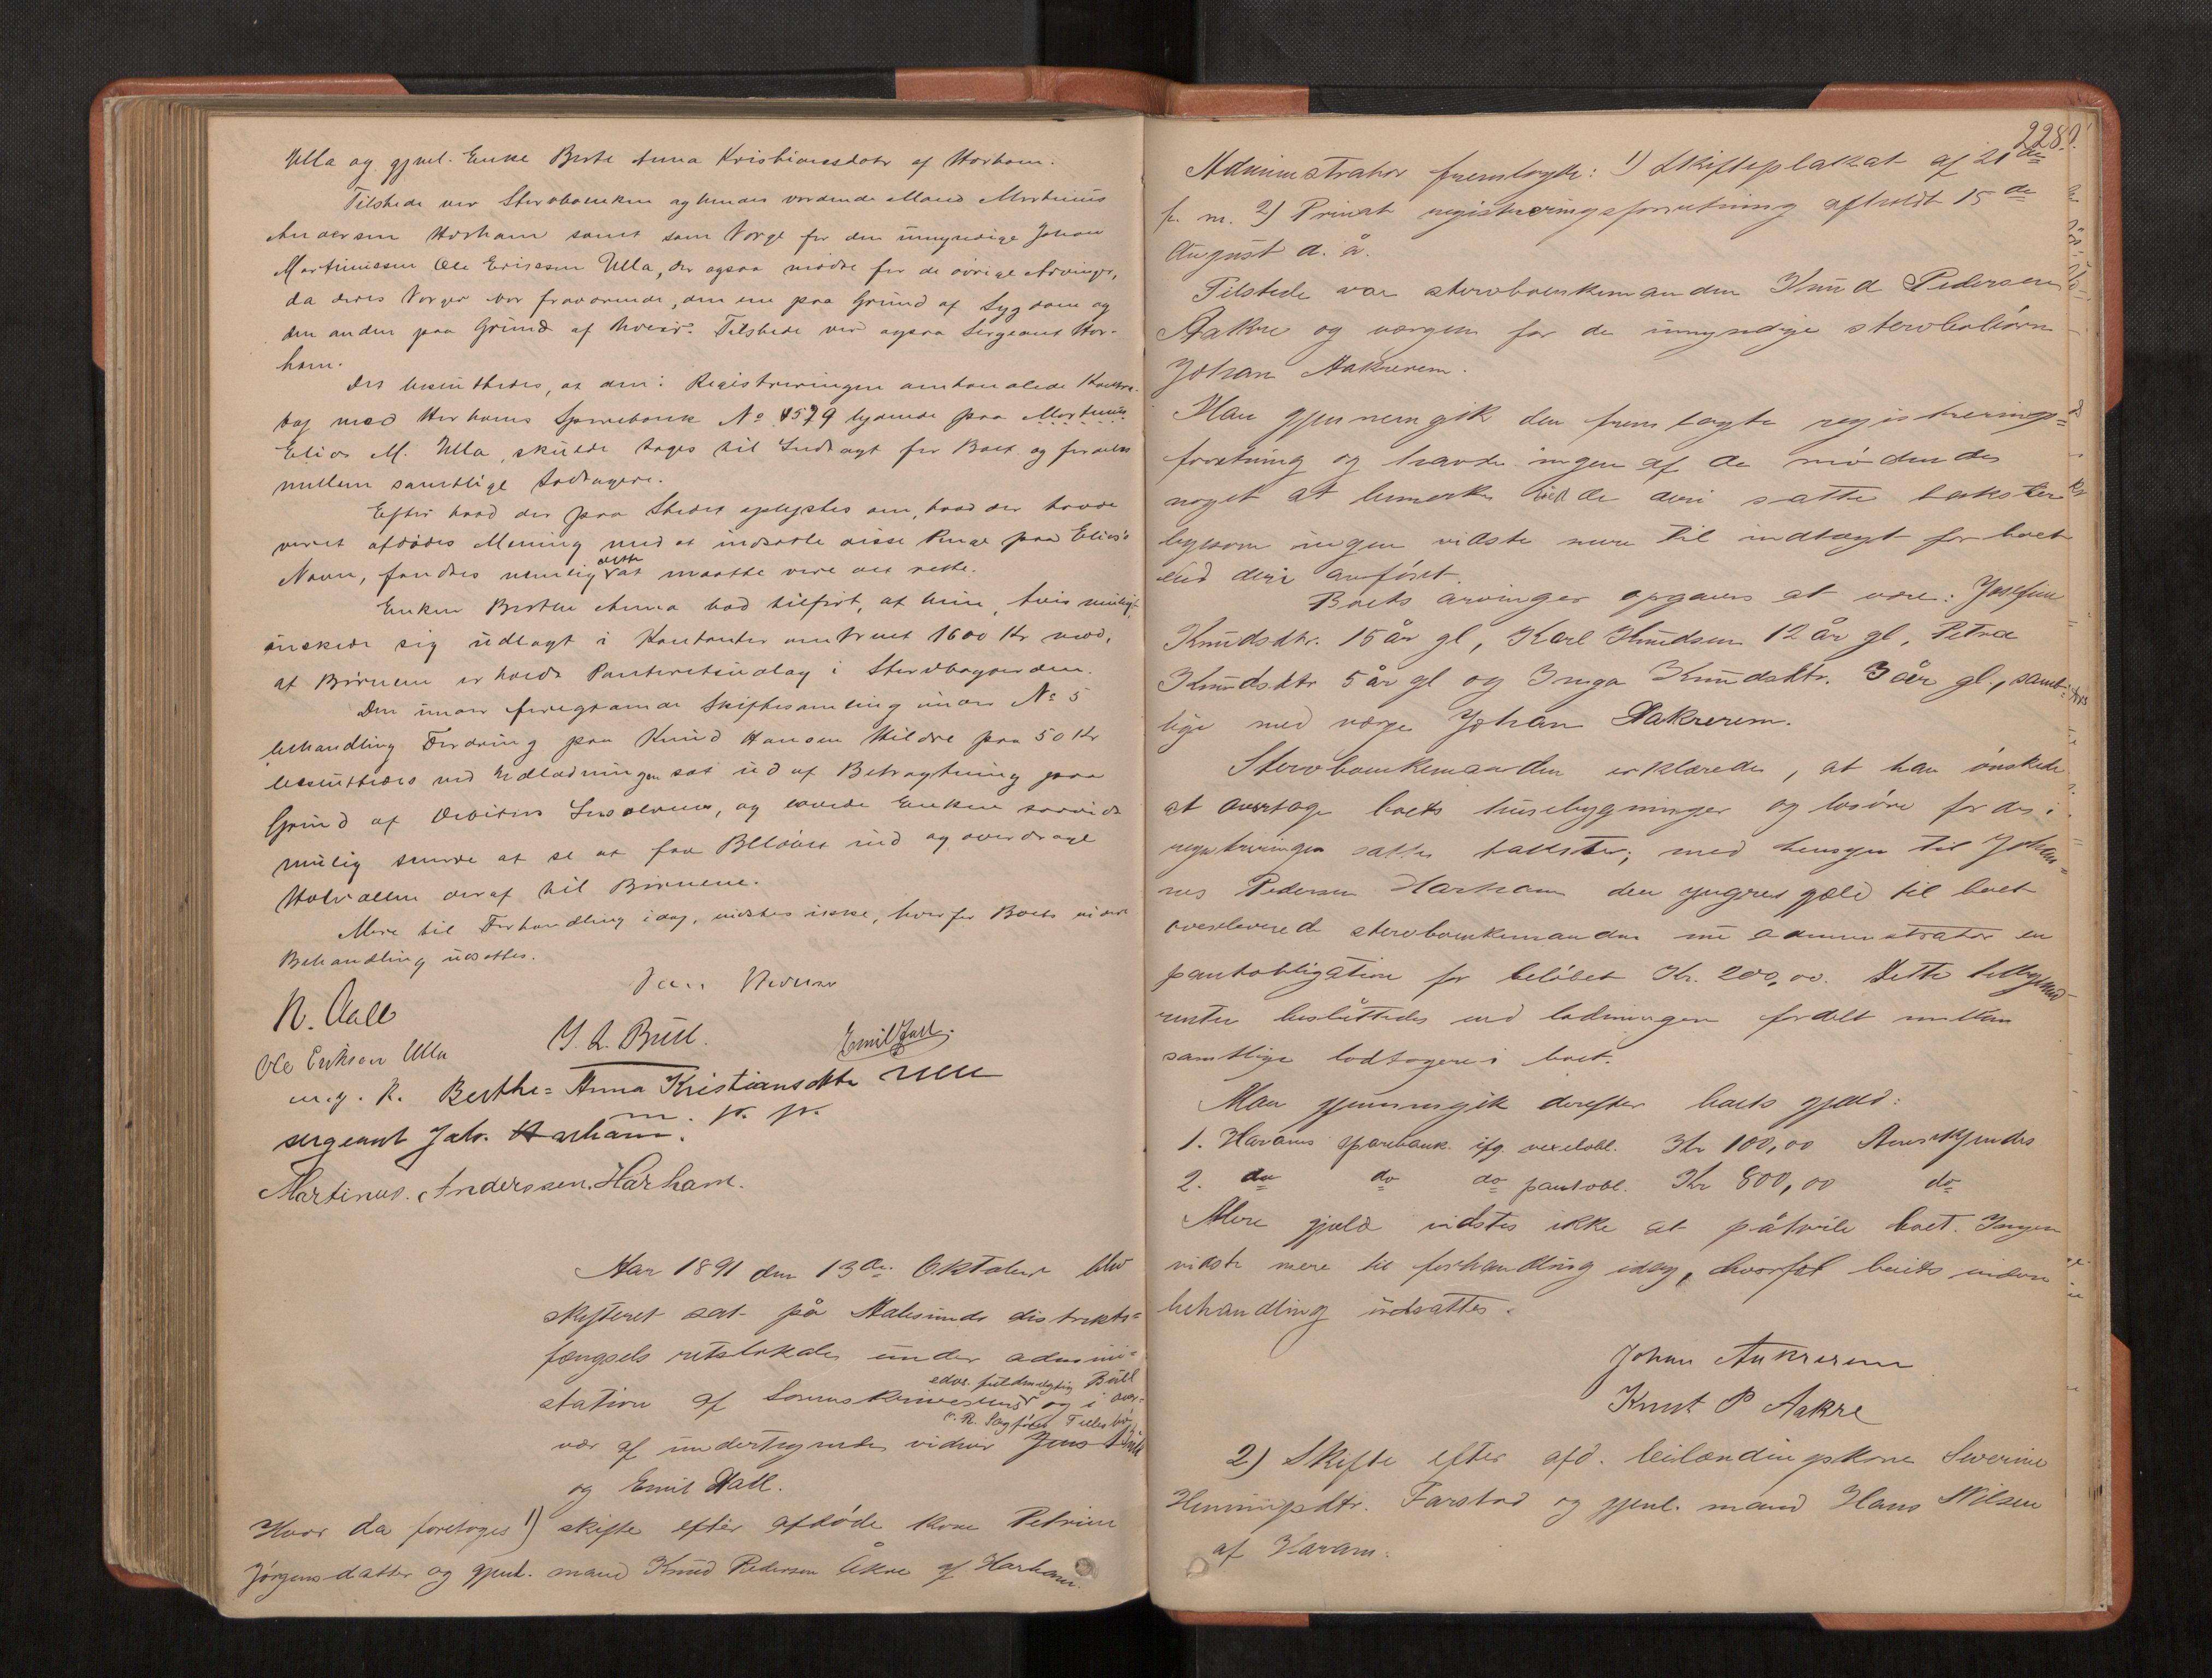 Ulla og gjenl. Enke Berte Anna Kristiansdatr af Harham.
Tilstede var Stervboenken og hendes vordende Mand Martinus
Andersen Harham samt som Verge for den umyndige Johan
Martinussen Ole Eriksen Ulla, der ogsaa mødte for de øvrige Arvinger,
da deres Verger var fraværende, den ene paa Grund af Sygdom og
den anden paa Grund af hverv. Tilstede var ogsaa Sergeant Har-
ham.
Det besluttedes, at den i Registreringen omhandlede Kontra-
bog med Harhams Sparebank No 4579 lydende paa Martinus
Elias M. Ulla, skulde tages til Indtægt for Boet og fordeles
mellem samtlige Lodtagere.
Efter hvad der paa Stedet oplystes om, hvad der havde
været afdødes Mening med at indsætte disse Penge paa Elias's
Navn, fandtes nemlig dette at maatte være det rette.
Enken Berthe Anna bad tilført, at hun, hvis muligt,
ønskede sig udlagt i Kontanter omtrent 1600 Kr mod,
at Børnene erholdt Panteretsudlæg i Stervbogaarden.
Den under foregaaende Skiftesamling under No 5
behandling Fordring paa Knud Hansen Hildre paa 50 Kr
besluttedes ved Udlodningen sat ud af Betragtning paa
Grund af Debitors Insolvens, og lovede Enken saavidt
mulig kunde at se at faa Beløbet ind og overdrage
Halvdelen deraf til Børnene.
Mere til Forhandling idag, vidstes ikke, hvorfor Boets videre
Behandling udsattes.
N. Aall
J. L. Bull.
Emil Hall.
Ole Eriksen Ulla
m. p. P. Berthe= Anna Kristiansdtr Ulla
m. p. p.
sergeant Joh. Harham.
Martinus. Anderssen. Harham.
Aar 1891 den 13de Oktober blev
skifteret sat på Aalesunds distrikts=
fængsels retslokale under admini=
stration af Sorenskriverens edsv. fuldmægtig Bull og i over-
vær af undertegnede vidner Jens
og Emil Hall.
Hvor da foretoges 1) skifte efter afdøde kone Petrine
Jørgensdatter og gjenl. mand Knud Pedersen Åkre af Harham.
228.
Administrator fremlagde: 1) Skifteplakat af 21de
f. m. 2) Privat registreringsforretning afholdt 15de
August d. å.
Tilstede var stervboenkemanden Knud Pedersen
Aakre og vergen for de umyndige stervbobørn
Johan Aakrerem.
Man gjennemgik den fremlagte registrerings=
forretning og havde ingen af de mødende
noget at bemerke ved de deri satte takster
ligesom ingen vidste mere til indtægt for boet
end deri anført.
Boets arvinger opgaves at være: Josefine
Knudsdtr. 15 år gl, Karl Knudsen 12 år gl, Petra
Knudsdtr 5 år gl og Inga Knudsdtr. 3 år gl., samt-
lige med verge Johan Aakrerem.
Stervboenkemanden erklærede, at han ønskede
at overtage boets husebygninger og løsøre for de i
registreringen satte takster; med hensyn til Johan-
nes Pedersen Harham den yngres gjæld til boet
overleverede stervboenkemanden nu administrator en
pantobligation for beløbet Kr. 200,00. Dette tilligemed
renter besluttedes ved lodningen fordelt mellem
samtlige lodtagere i boet.
Man gjennemgik derefter boets gjæld:
1. Harams sparebank ifg vexelobl. Kr 100,00 Anerkjendes
2. do do do pantobl. Kr 800,00 do
Mere gjæld vidstes ikke at påhvile boet. Ingen
vidste mere til forhandling idag, hvorfor boets videre
behandling udsattes.
Johan Aakrerem
Knut P Aakre
2) Skifte efter afd. leilændingskone Severine
Henningsdtr. Farstad og gjenl. mand Hans Nilsen
af Haram.